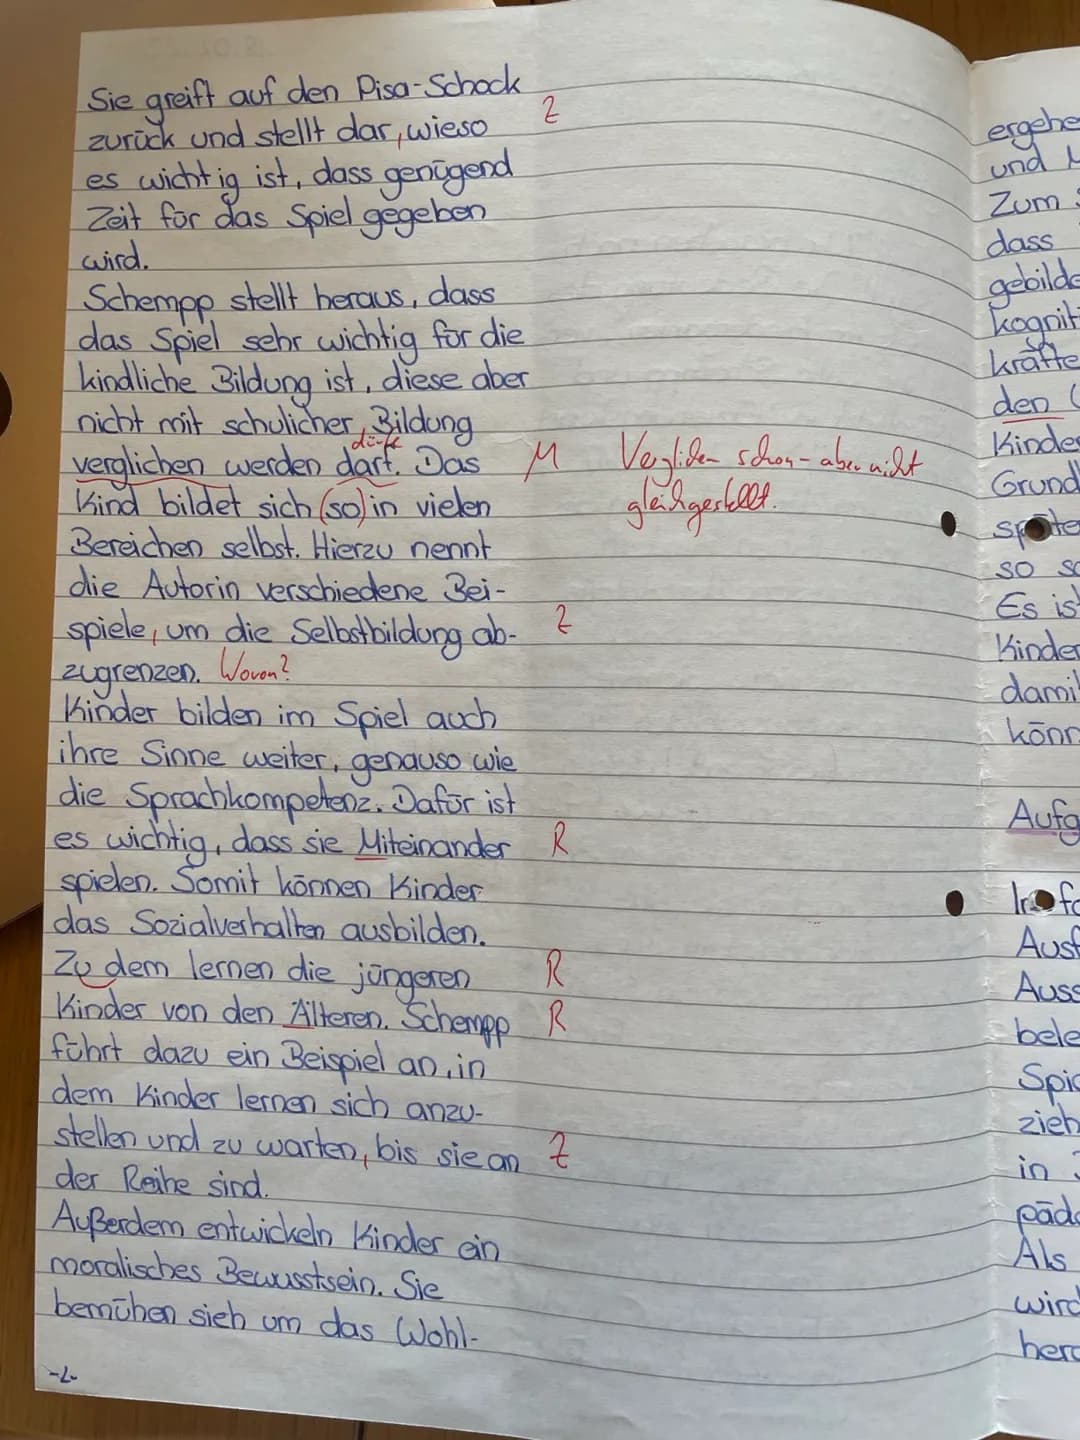 Sie greift auf den Pisa-Schock
zurück und stellt dar, wieso Z
es wichtig ist, dass genügend
Zeit für das Spiel gegeben
wird.
Schempp stellt heraus, dass
das Spiel sehr wichtig für die
kindliche Bildung ist, diese aber
nicht mit schulicher Bildung
dürfe
verglichen werden darf. Das M Verglichen schon - aber nicht
gleichgestellt.
Kind bildet sich (so) in vielen
Bereichen selbst. Hierzu nennt
die Autorin verschiedene Bei-
spiele, um die Selbstbildung ab- Z
zugrenzen. Wovon?
Kinder bilden im Spiel auch
ihre Sinne weiter, genauso wie
die Sprachkompetenz. Dafür ist
es wichtig, dass sie Miteinander R
spielen. Somit können Kinder
das Sozialverhalten ausbilden.
Zu dem lernen die jüngeren R
Kinder von den Älteren. Schempp R
führt dazu ein Beispiel an, in
dem Kinder lernen sich anzu-
stellen und zu warten, bis sie an Z
der Reihe sind.
Außerdem entwickeln Kinder ein
moralisches Bewusstsein. Sie
bemühen sich um das Wohl-
-2-
und
Zum
dass
den
Kinder
so
Es
Kinder
in
Als